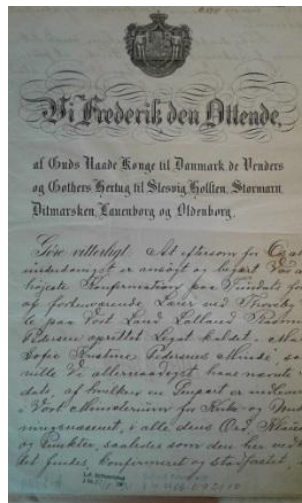 Vi Frederik den Ottende,
af Guds Naade Konge til Danmark de Venders
og Gothers Hertug til Slesvig, Holsten, Stormarn,
Ditmarsken, Lauenborg og Oldenborg.
Göre vitterligt: At eftersom for Os al
underdanigst er ansøgt og begært Vor a
højeste Konfirmation paa Fundats fo
af forhenværende Lærer ved Thoreby
le paa Vort Land Lolland Rasmus
Pedersen oprettet Legat kaldet
Sofie Kristine Pedersens Minde, sa
ville Vi allernaadigst have nævnte
dats, af hvilken en Genpart er indleve
i Vort Ministerium for Kirke- og Unde
ningsvæsenet, i alle dens Ord, Klausu
og Punkter, saaledes som den her ved
tet findes, konfirmeret og stadfæstet,